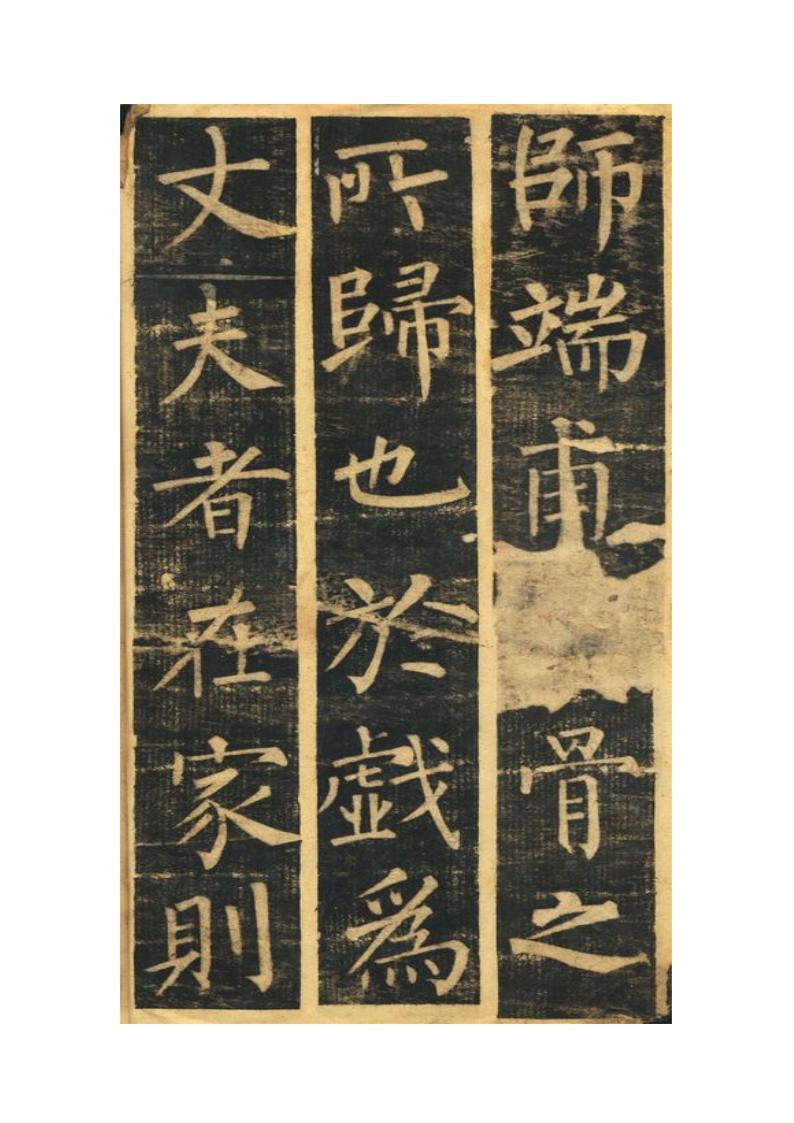 師端甫骨之
所歸也於戲為
丈夫者在家則